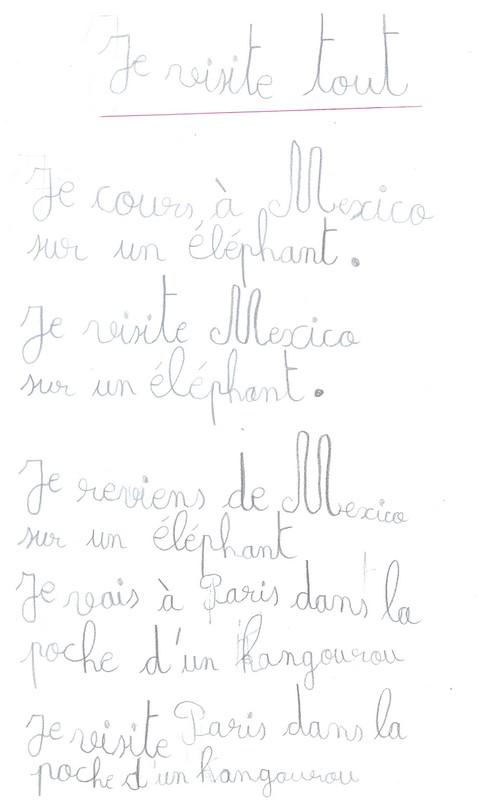 Je visite tout
Je cours à Mexico
sur un éléphant.
Je visite Mexico
sur un éléphant.
Je reviens de Mexico
sur un éléphant
Je vais à Paris dans la
poche d'un kangourou
Je visite Paris dans la
poche d'un kangourou